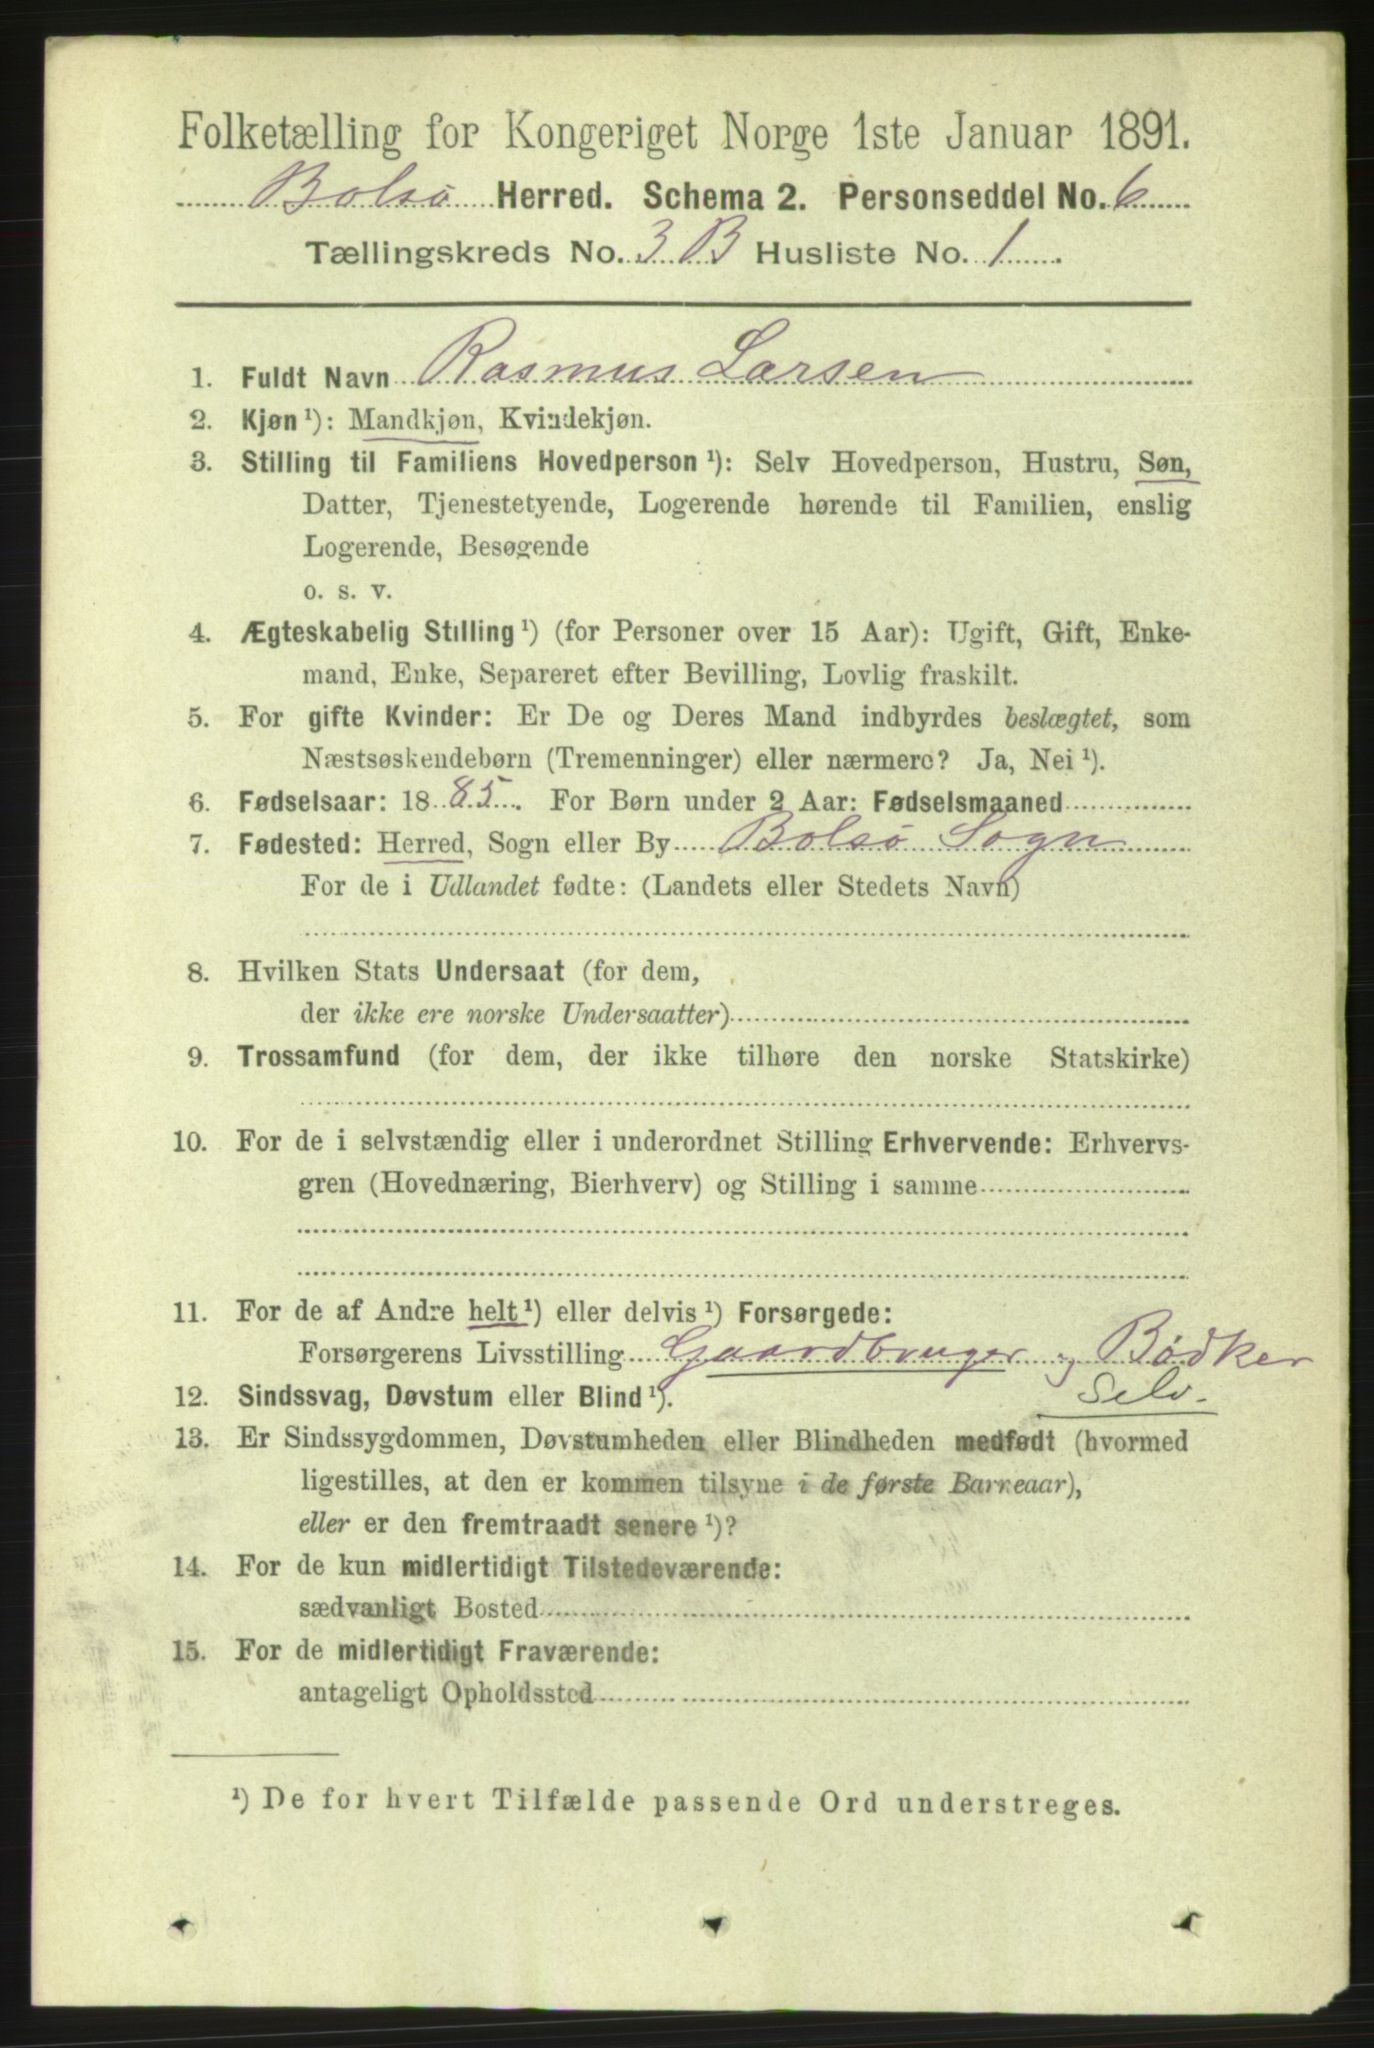 Folketælling for Kongeriget Norge 1ste Januar 1891.
Bolsø Herred. Schema 2. Personseddel No. 6
Tællingskreds No. 3 B Husliste No. 1
1. Fuldt Navn Rasmus Larsen
2. Kjøn ¹): Mandkjøn, Kvindekjøn.
3. Stilling til Familiens Hovedperson ¹): Selv Hovedperson, Hustru, Søn,
Datter, Tjenestetyende, Logerende hørende til Familien, enslig
Logerende, Besøgende
o. s. v.
4. Ægteskabelig Stilling ¹) (for Personer over 15 Aar): Ugift, Gift, Enke-
mand, Enke, Separeret efter Bevilling, Lovlig fraskilt.
5. For gifte Kvinder: Er De og Deres Mand indbyrdes beslægtet, som
Næstsøskendebørn (Tremenninger) eller nærmere? Ja, Nei ¹).
6. Fødselsaar: 18 85. For Børn under 2 Aar: Fødselsmaaned
7. Fødested: Herred, Sogn eller By Bolsø Sogn
For de i Udlandet fødte: (Landets eller Stedets Navn)
8. Hvilken Stats Undersaat (for dem,
der ikke ere norske Undersaatter)
9. Trossamfund (for dem, der ikke tilhøre den norske Statskirke)
10. For de i selvstændig eller i underordnet Stilling Erhvervende: Erhvervs-
gren (Hovednæring, Bierhverv) og Stilling i samme
11. For de af Andre helt ¹) eller delvis ¹) Forsørgede:
Forsørgerens Livsstilling Gaardbruger og Bødker
Selv.
12. Sindssvag, Døvstum eller Blind ¹).
13. Er Sindssygdommen, Døvstumheden eller Blindheden medfødt (hvormed
ligestilles, at den er kommen tilsyne i de første Barneaar),
eller er den fremtraadt senere ¹)?
14. For de kun midlertidigt Tilstedeværende:
sædvanligt Bosted
15. For de midlertidigt Fraværende:
antageligt Opholdssted
¹) De for hvert Tilfælde passende Ord understreges.